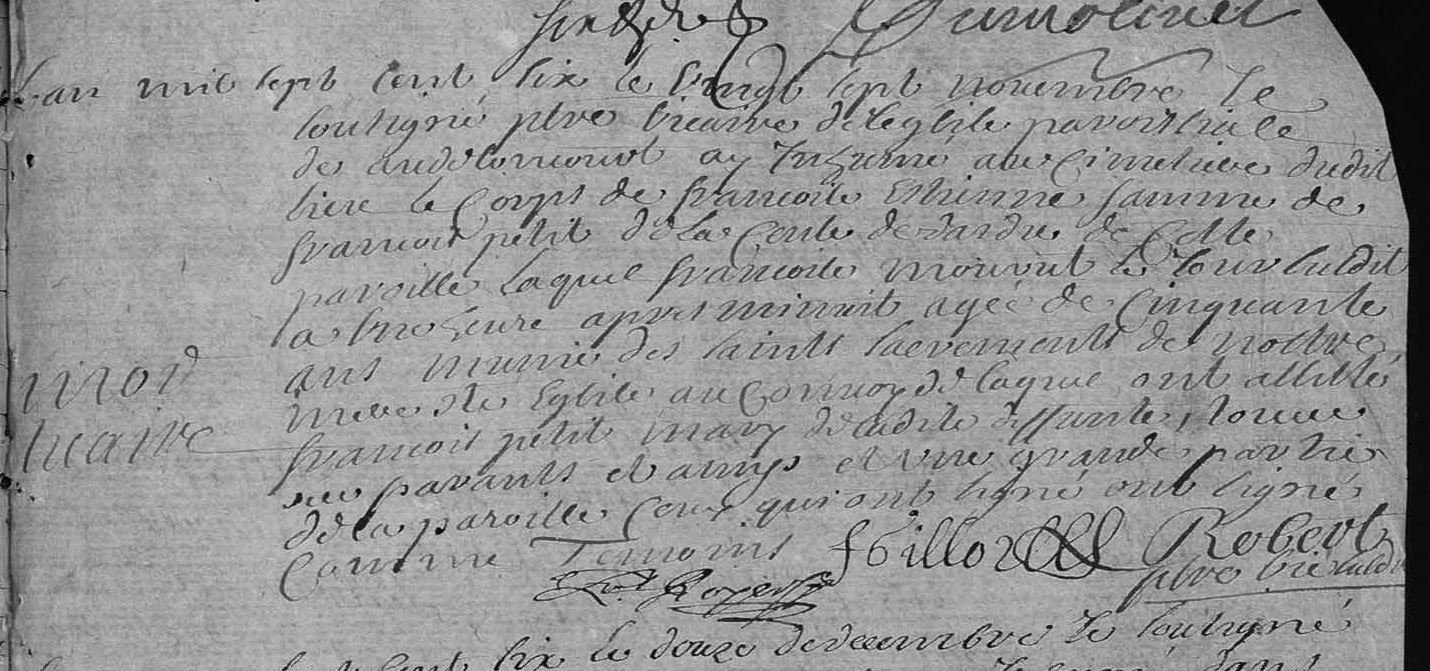 Dumolinet
Lan mil sept cent six le vingt sept novembre Je
soubsigné ptre vicaire de leglise parroissiale
de ay inhumé au cimetiere dudit
lieu le corps de francoise Estienne famme de
francois petit de la de de cette
paroisse laquel francoise mourut le jour susdit
a une heure apres minuit agée de cinquante
ans munie des saints sacrements de nostre
mere ste Eglise au convoy de laquel ont assisté
francois petit mary de ladite deffunte, toute
ses parants et amys et une grande partie
de la paroisse ceux qui ont signé ont signé
comme Temoins Robert
ptre vic susdit
Royer
mor
tuaire
cent six le douze de decembre Je soubsigné